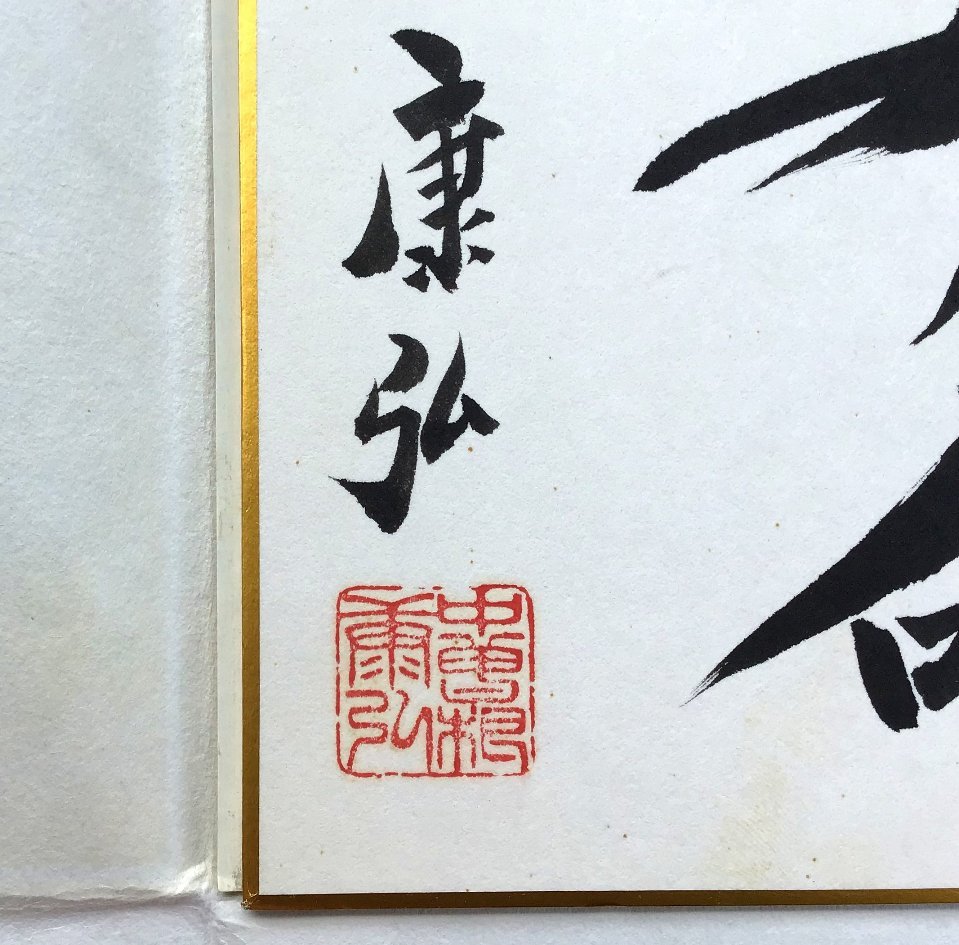 康弘
中曽根
康弘